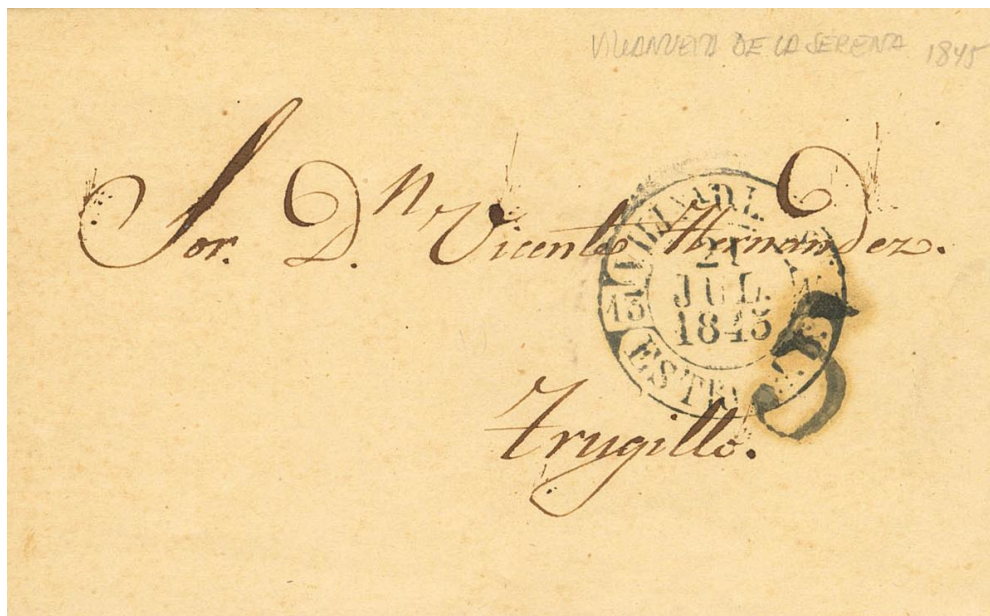 VILLANUEVA DE LA SERENA 1845
Sor. D.n Vicente Hernandez.
21
JUL.
1845
13
Trugillo.